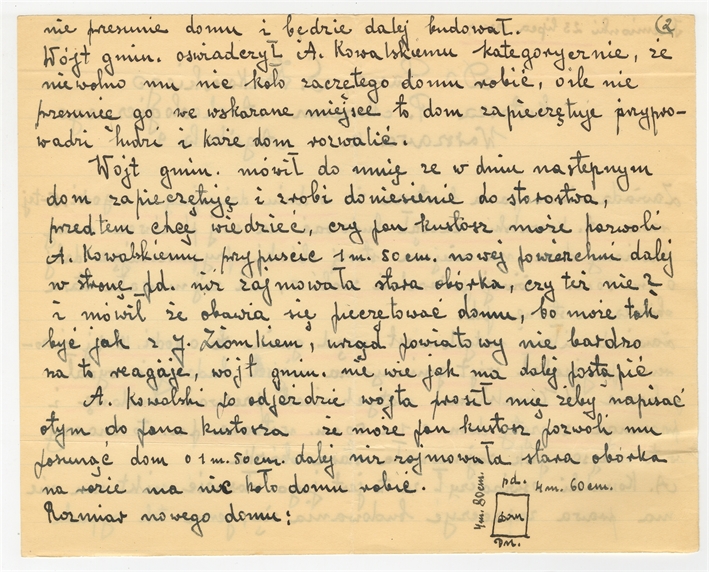 nie przesunie domu i będzie dalej budował. (2
Wójt gmin. oswiadczył A. Kowalskiemu kategorycznie, ze
niewolno mu nic koło zaczętego domu robić, oile nie
przesunie go we wskazane miejsce to dom zapieczętuje przypro-
wadzi ludzi i każe dom rozwalić.
Wójt gmin. mówił do mnię ze w dniu nastepnym
dom zapieczętuję i zrobi doniesienie do starostwa,
przedtem chcę wiedzieć, czy pan kustosz może pozwoli
A. Kowalskiemu przypuscic 1 m. 50 cm. nowej powierzchni dalej
w stronę pd. niż zajmowała stara obórka, czy też nie?
i mówił że obawia się pieczętować domu, bo może tak
być jak z J. Ziomkiem, urząd powiatowy nie bardzo
na to reagaje, wójt gmin. nie wie jak ma dalej postąpić
A. Kowalski po odjeździe wójta prosił mię żeby napisać
otym do pana kustosza że może pan kustosz pozwoli mu
posunąć dom o 1 m. 50 cm. dalej niż zajmowała stara obórka
na razie ma nic koło domu robić.
Rozmiar nowego domu:
pd. 4 m. 60 cm.
4 m. 80 cm.
dom
pn.